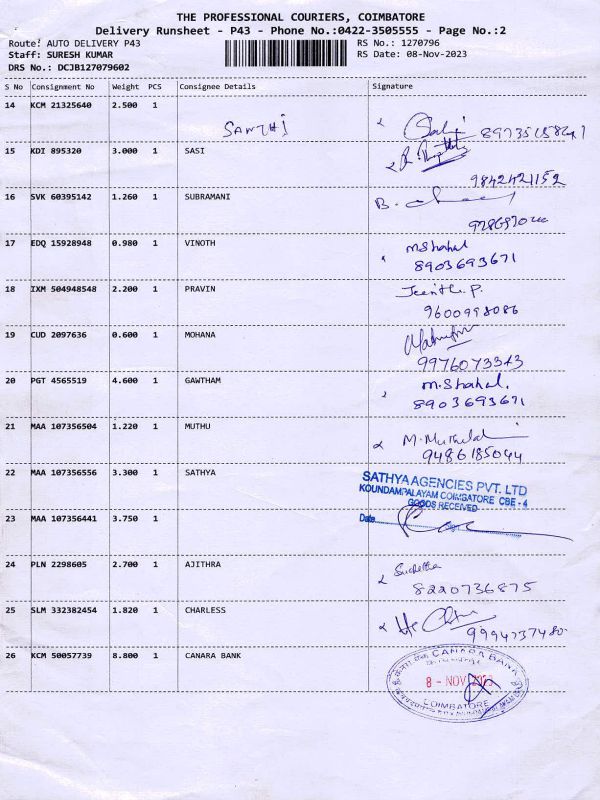 THE PROFESSIONAL COURIERS, COIMBATORE
Delivery Runsheet - P43 - Phone No.:0422-3505555 - Page No.:2
Route: AUTO DELIVERY P43 RS No.: 1270796
Staff: SURESH KUMAR RS Date: 08-Nov-2023
DRS No.: DCJB127079602
S No Consignment No Weight PCS Consignee Details Signature
14 KCM 21325640 2.500 1 SANTHI
15 KDI 895320 3.000 1 SASI
9842421152
16 SVK 60395142 1.260 1 SUBRAMANI B.
17 EDQ 15928948 0.980 1 VINOTH M.Shahal
8903693671
18 IXM 504948548 2.200 1 PRAVIN Jeenth. P.
9600998086
19 CUD 2097636 0.600 1 MOHANA
9976073343
20 PGT 4565519 4.600 1 GAWTHAM M.Shahal.
8903693671
21 MAA 107356504 1.220 1 MUTHU
9486185044
22 MAA 107356556 3.300 1 SATHYA SATHYA AGENCIES PVT. LTD
KOUNDAMPALAYAM COIMBATORE CBE - 4
GOODS RECEIVED
23 MAA 107356441 3.750 1 Date Sign
24 PLN 2298605 2.700 1 AJITHRA
8220736875
25 SLM 332382454 1.820 1 CHARLESS
9994737480
26 KCM 50057739 8.800 1 CANARA BANK CANARA BANK
8 - NOV 2023
COIMBATORE